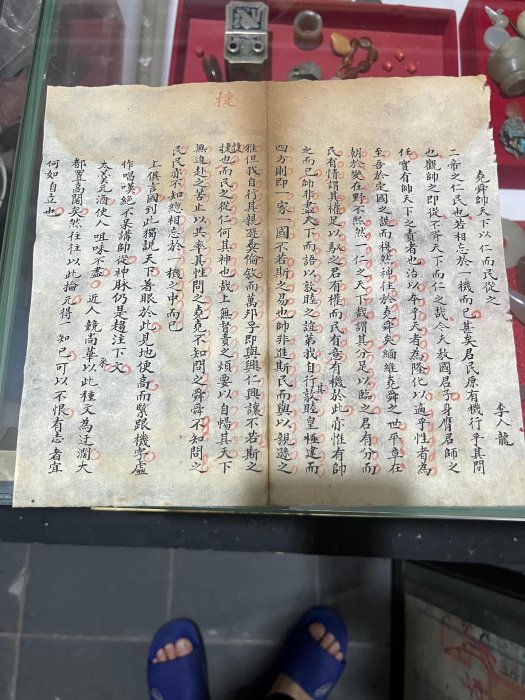 堯舜帥天下以仁而民從之
李人龍
二帝之仁民也若相忘於一機而已甚矣君民原有機行乎其間
也觀帥之即從不呼天下而仁之哉今夫教國君子身膺君師之
任實有帥天下之責者也治以本乎天者為隆化以通乎性者為
至吾於定國之說而穆然神往於堯舜矣緬維堯舜之世平章在
朝於變在野不熙然一仁之天下哉謂其分足以臨之君有分而
民有情謂其權足以馭之君有權而民有意有機於此亦惟有帥
之而已帥非盡天下而語以敦睦之誼第我自行其敦睦皇極建而
四方則即一家一國不若斯之易也帥非進斯民而與以親遜之
雅但我自行其親遜彝倫敘而萬邦孚即與興仁興讓不若斯之
捷也而民之從仁何其神也哉上無督責之煩要以自暢其天下
無迫赴之苦止以共率其性問之堯堯不知問之舜舜不知問之
民民亦不知總相忘於一機之中而已
上俱言國到此獨說天下著眼於此見地便高而緊跟機字虛
作唱嘆絕不呆講帥從神脉仍是超注下文
太羹元酒使人咀味不盡 近人競尚華采以此種文為迂濶大
都置高閣矣然往往以此掄元得一知己可以不恨有志者宜
何如自立也
捷